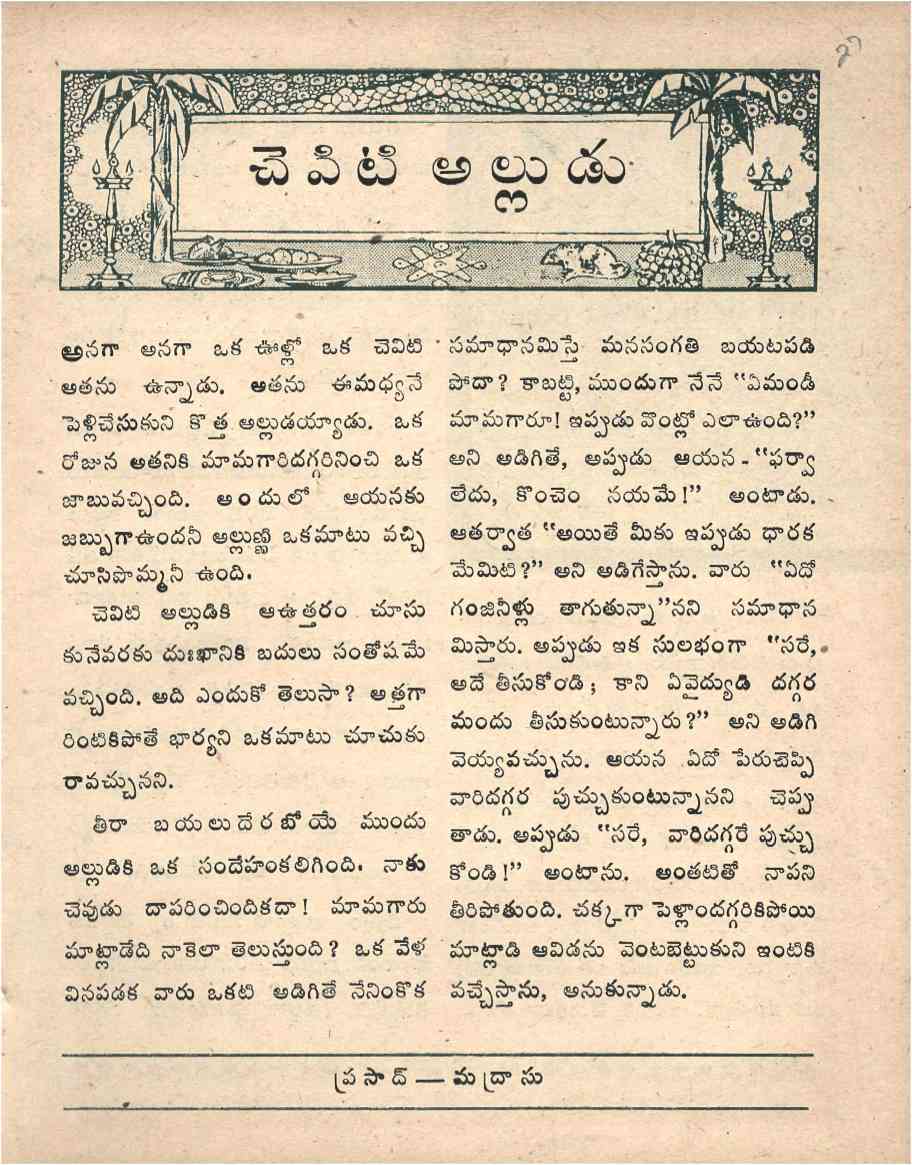 27
చెవిటి అల్లుడు
అనగా అనగా ఒక ఊళ్లో ఒక చెవిటి
ఆతను ఉన్నాడు. ఆతను ఈమధ్యనే
పెళ్లిచేసుకుని కొత్త అల్లుడయ్యాడు. ఒక
రోజున అతనికి మామగారిదగ్గరినించి ఒక
జాబువచ్చింది. అందులో ఆయనకు
జబ్బుగాఉందనీ అల్లుణ్ణి ఒకమాటు వచ్చి
చూసిపొమ్మనీ ఉంది.
చెవిటి అల్లుడికి ఆఉత్తరం చూసు
కునేవరకు దుఃఖానికి బదులు సంతోషమే
వచ్చింది. అది ఎందుకో తెలుసా? అత్తగా
రింటికిపోతే భార్యని ఒకమాటు చూచుకు
రావచ్చునని.
తీరా బయలుదేరబోయే ముందు
అల్లుడికి ఒక సందేహంకలిగింది. నాకు
చెవుడు దాపరించిందికదా! మామగారు
మాట్లాడేది నాకెలా తెలుస్తుంది? ఒక వేళ
వినపడక వారు ఒకటి అడిగితే నేనింకొక
సమాధానమిస్తే మనసంగతి బయటపడి
పోదా? కాబట్టి, ముందుగా నేనే "ఏమండీ
మామగారూ! ఇప్పుడు వొంట్లో ఎలాఉంది?"
అని అడిగితే, అప్పుడు ఆయన - "ఫర్వా
లేదు, కొంచెం నయమే!" అంటాడు.
ఆతర్వాత "అయితే మీకు ఇప్పుడు ధారక
మేమిటి?" అని అడిగేస్తాను. వారు "ఏదో
గంజినీళ్లు తాగుతున్నా"నని సమాధాన
మిస్తారు. అప్పుడు ఇక సులభంగా "సరే,
అదే తీసుకోండి; కాని ఏవైద్యుడి దగ్గర
మందు తీసుకుంటున్నారు?" అని అడిగి
వెయ్యవచ్చును. ఆయన ఏదో పేరుచెప్పి
వారిదగ్గర పుచ్చుకుంటున్నానని చెప్పు
తాడు. అప్పుడు "సరే, వారిదగ్గరే పుచ్చు
కోండి!" అంటాను. అంతటితో నాపని
తీరిపోతుంది. చక్కగా పెళ్లాందగ్గరికిపోయి
మాట్లాడి ఆవిడను వెంటబెట్టుకుని ఇంటికి
వచ్చేస్తాను, అనుకున్నాడు.
ప్రసాద్ — మద్రాసు